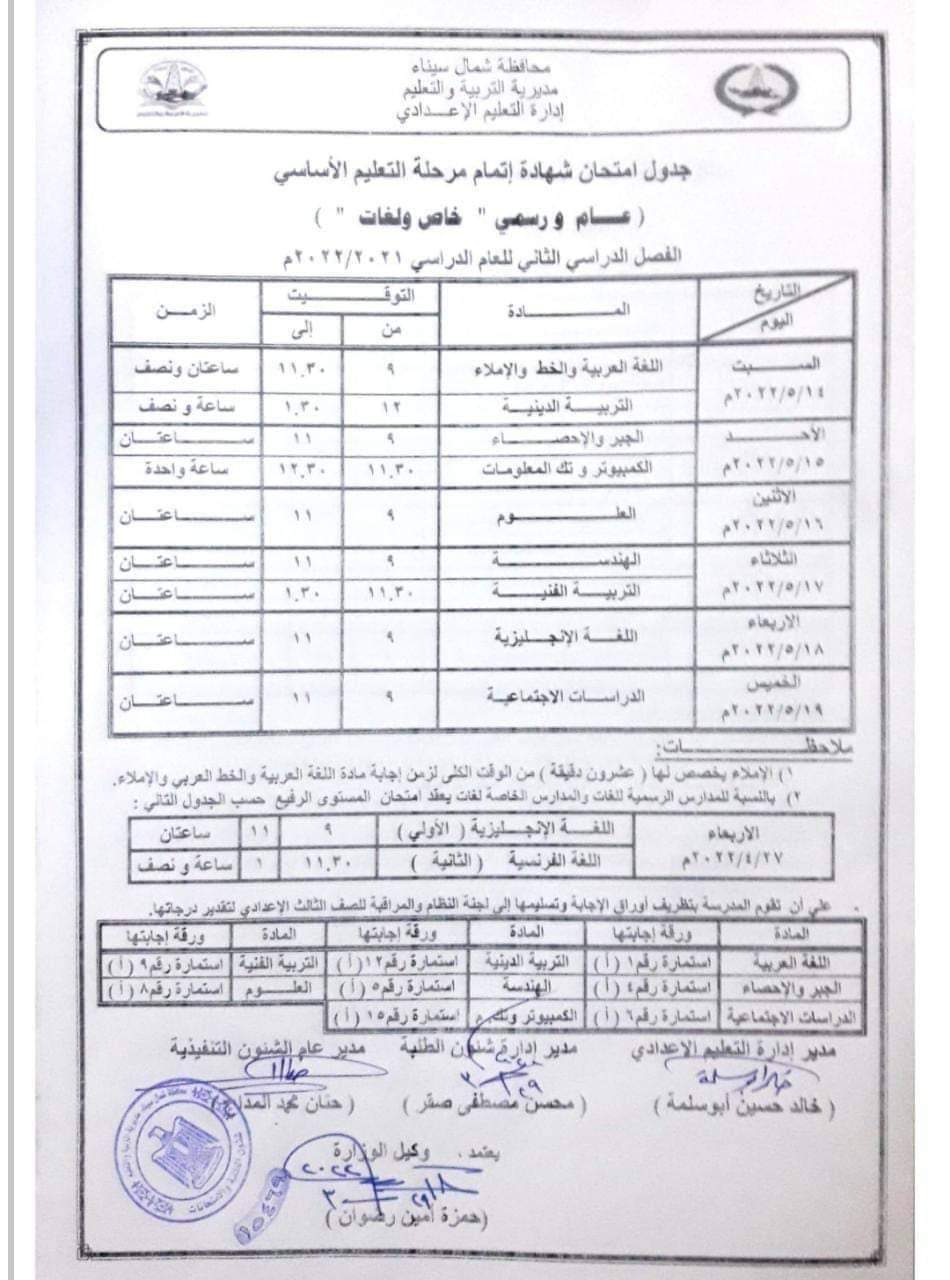 محافظة شمال سيناء
مديرية التربية والتعليم
إدارة التعليم الإعـــدادي
جدول امتحان شهادة إتمام مرحلة التعليم الأساسي
( عـــام ورسمي " خاص ولغات " )
الفصل الدراسي الثاني للعام الدراسي ٢٠٢٢/٢٠٢١م
التاريخ اليوم المـــــادة التوقـــــيت الزمـــن
من إلى
الســـبت ٢٠٢٢/٥/١٤م اللغة العربية والخط والإملاء ٩ ١١,٣٠ ساعتان ونصف
التربيـــة الدينيـة ١٢ ١,٣٠ ساعة ونصف
الأحـــد ٢٠٢٢/٥/١٥م الجبر والإحصـــاء ٩ ١١ ســـاعتـــان
الكمبيوتر وتك المعلومات ١١,٣٠ ١٢,٣٠ ساعة واحدة
الاثنين ٢٠٢٢/٥/١٦م العلـــــوم ٩ ١١ ســـاعتـــان
الثلاثاء ٢٠٢٢/٥/١٧م الهندســـة ٩ ١١ ســـاعتـــان
التربيـــة الفنيـة ١١,٣٠ ١,٣٠ ســـاعتـــان
الاربعاء ٢٠٢٢/٥/١٨م اللغـــة الإنجـليزية ٩ ١١ ســـاعتـــان
الخميس ٢٠٢٢/٥/١٩م الدراسات الاجتماعية ٩ ١١ ســـاعتـــان
ملاحظـــــات:
١) الإملاء يخصص لها ( عشرون دقيقة ) من الوقت الكلى لزمن إجابة مادة اللغة العربية والخط العربي والإملاء.
٢) بالنسبة للمدارس الرسمية للغات والمدارس الخاصة لغات يعقد امتحان المستوى الرفيع حسب الجدول التالي :
الاربعاء ٢٠٢٢/٤/٢٧م اللغـــة الإنجـليزية ( الأولي ) ٩ ١١ ساعتان
اللغة الفرنسية ( الثانية ) ١١,٣٠ ١ ساعة ونصف
- علي أن تقوم المدرسة بتظريف أوراق الإجابة وتسليمها إلى لجنة النظام والمراقبة للصف الثالث الإعدادي لتقدير درجاتها.
المادة ورقة إجابتها المادة ورقة إجابتها المادة ورقة إجابتها
اللغة العربية استمارة رقم١ ( أ ) التربية الدينية استمارة رقم١٢ ( أ ) التربية الفنية استمارة رقم٩ ( أ )
الجبر والإحصاء استمارة رقم٤ ( أ ) الهندسة استمارة رقم٥ ( أ ) العلـــوم استمارة رقم٨ ( أ )
الدراسات الاجتماعية استمارة رقم٦ ( أ ) الكمبيوتر وتك. م استمارة رقم١٥ ( أ )
مدير إدارة التعليم الإعدادي مدير إدارة شئون الطلبة مدير عام الشئون التنفيذية
( خالد حسين أبوسلمة ) ( محسن مصطفى صقر ) ( حنان محمد
يعتمد، وكيل الوزارة
٢٠٢٢
(حمزة أمين رضوان )